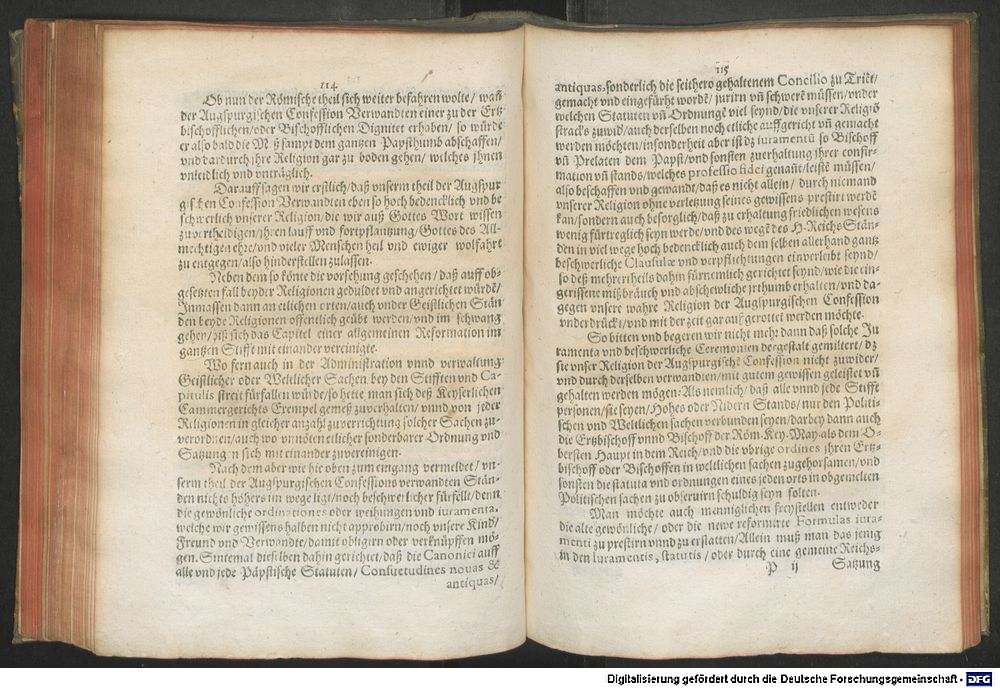 114
Ob nun der Römische theil sich weiter befahren wolte/ wañ
der Augspurgischen Confession Verwandten einer zu der Ertz
bischofflichen/oder Bischofflichen Dignitet erhaben/ so würde
er also bald die Meß sampt dem gantzen Papsthumb abschaffen/
vnd dardurch ihre Religion gar zu boden gehen/ welches ihnen
vnleidlich vnd vnträglich.
Darauff sagen wir erstlich/ daß vnserm theil der Augspur
gischen Confession Verwandten eben so hoch bedencklich vnd be
schwerlich vnserer Religion, die wir auß Gottes Wort wissen
zuvertheidigen/jhren lauff vnd fortpflantzung/Gottes des All-
mechtigen ehre/vnd vieler Menschen heil vnd ewiger wolfahrt
zu entgegen/also hinderstellen zulassen.
Neben dem so könte die vorsehung geschehen/ daß auff ob-
gesetzten fall beyder Religionen geduldet vnd angerichtet würdē/
Inmassen dann an etlichen orten/auch vnder Geistlichen Stän
den beyde Religionen offentlich geübt werden/vnd im schwang
gehen/biß sich das Capitel einer allgemeinen Reformation im
gantzen Stifft mit einander vereinigte.
Wo fern auch in der Administration vnnd verwaltung
Geistlicher oder Weltlicher Sachen bey den Stifften vnd Ca-
pitulis streit fürfallen würde/so hette man sich deß Keyserlichen
Cammergerichts Exempel gemeß zuverhalten/ vnnd von jeder
Religionen in gleicher anzahl zuverrichtung solcher Sachen zu-
verordnen/auch wo vnnöten etlicher sonderbarer Ordnung vnd
Satzungen sich mit einander zuvereinigen.
Nach dem aber wie hie oben zum eingang vermeldet/ vn-
serm theil der Augspurgischen Confessions verwandten Stän-
den nichts höhers im wege ligt/noch beschwerlicher fürfellt/denn
die gewönliche ordinationes oder weihungen vnd iuramenta,
welche wir gewissens halben nicht approbirn/noch vnsere Kind/
Freund vnd Verwandte/damit obligirn oder verknüpffen mö-
gen. Sintemal dieselben dahin gerichtet/daß die Canonici auff
alle vnd jede Päpstische Statuten/ Consuetudines nouas &
antiquas/
115
antiquas, sonderlich die seithero gehaltenem Concilio zu Triēt/
gemacht vnd eingefürht wordē/ jurirn vñ schwerē müssen/vnder
welchen Statuten vñ Ordnungē viel seynd/die vnserer Religiō
stracks zuwid/auch derselben noch etliche auffgericht vñ gemacht
werden möchten/insonderheit aber ist dz iuramentū so Bischoff
vñ Prelaten dem Papst/vnd sonsten zuerhaltung ihrer confir-
mation vñ stands/welches professio fidei genañt/leistē müssen/
also beschaffen vnd gewandt/daß es nicht allein/ durch niemand
vnserer Religion ohne verletzung seines gewissens prestirt werdē
kan/sondern auch besorglich/daß zu erhaltung friedlichen wesens
wenig fürtreglich seyn werde/vnd des wegē des H-Reichs Stän-
den in viel wege hoch bedencklich auch dem selben allerhand gantz
beschwerliche Clausulæ vnd verpflichtungen einverleibt seynd/
so deß mehrertheils dahin fürnemlich gerichtet seynd/wie die ein-
gerissene mißbräuch vnd abschewliche jrthumb erhalten/vnd da-
gegen vnsere wahre Religion der Augspurgischen Confession
vnderdrückt/vnd mit der zeit gar auß gerottet werden möchte.
So bitten vnd begeren wir nicht mehr dann daß solche Ju
ramenta vnd beschwerliche Ceremonien dergestalt gemiltert/ dz
sie vnser Religion der Augspurgischē Confession nicht zuwider/
vnd durch derselben verwandten/mit gutem gewissen geleistet vñ
gehalten werden mögen: Als nemlich/ daß alle vnnd jede Stifft
personen/sie seyen/Hohes oder Nidern Stands/ nur den Politi-
schen vnd Weltlichen sachen verbunden seyen/darbey dann auch
die Ertzbischoff vnnd Bischoff der Röm. Key. May. als dem O-
bersten Haupt in dem Reich/vnd die vbrige ordines ihren Ertz-
bischoff oder Bischoffen in weltlichen sachen zugehorsamen/vnd
sonsten die statuta vnd ordnungen eines jeden orts in obgemelten
Politischen sachen zu obseruirn schuldig seyn solten.
Man möchte auch menniglichen freystellen entweder
die alte gewönliche/ oder die newe reformirte Formulas iura-
menti zu prestirn vnnd zu erstatten/Allein muß man das jenig
in den Iuramentis, statutis/ oder durch eine gemeine Reichs-
P ij Satzung
Digitalisierung gefördert durch die Deutsche Forschungsgemeinschaft - DFG